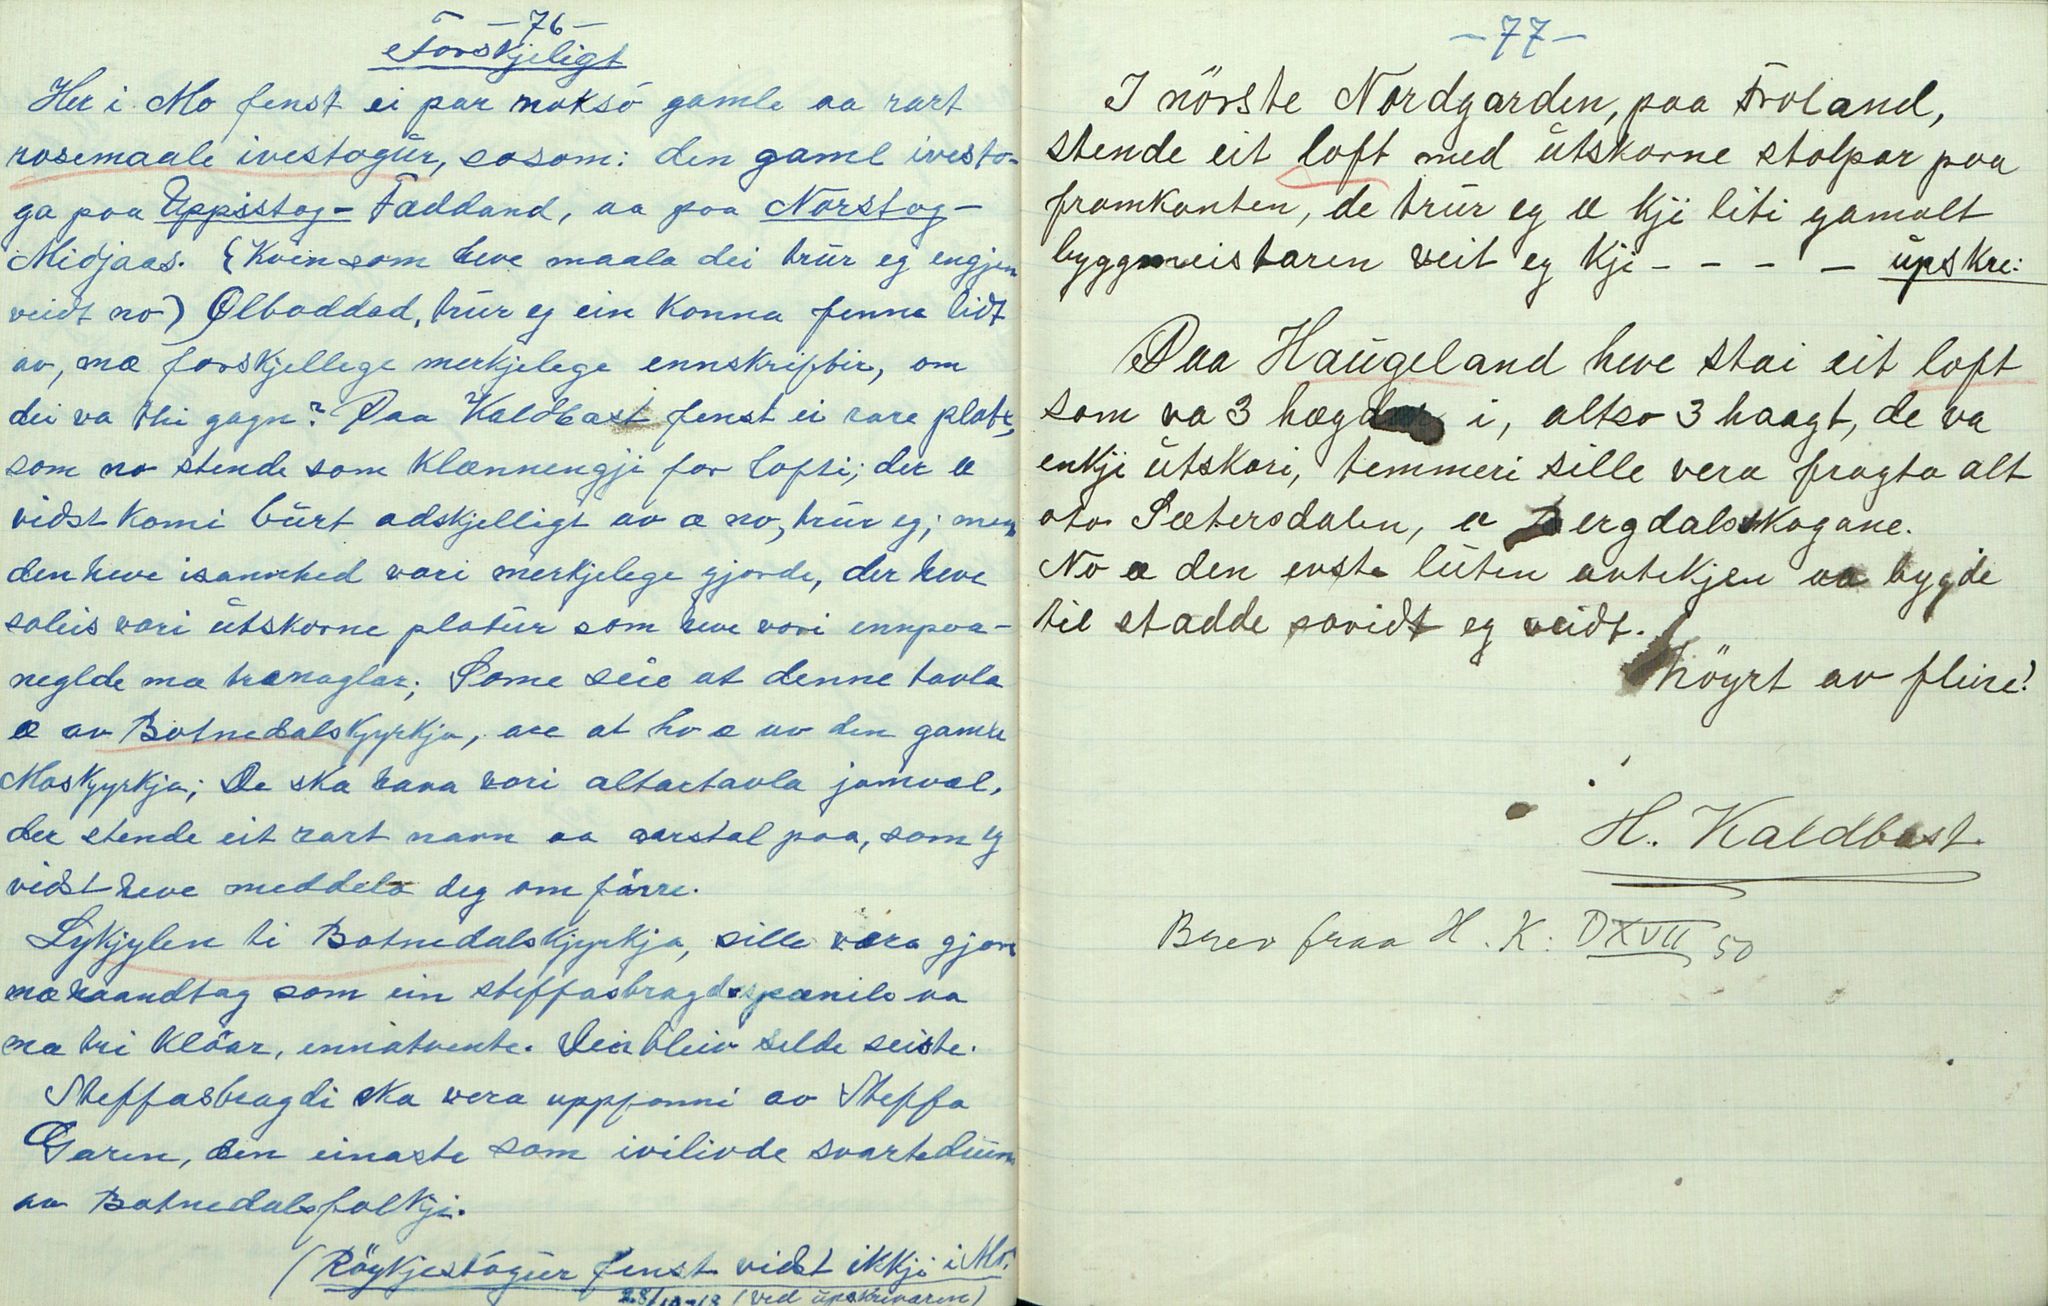 -76-
Forskjeligt
Her i Mo fenst ei par noksó gamle aa rart
rosemaale ivestogúr, sosom: den gaml ivesto-
ga paa Uppistog- Fæddand, aa paa Norstog-
Midjaas. (Kvin som heve maala dei trúr eg engjen
veidt no) Ølboddad, trúr eg ein konna fenna lidt
av, mæ forskjellege merkjelege ennskriftir, om
dei va thi gagn? Paa Kaldbast fenst ei rare plate,
som no stende som klænnengji for lofti; der æ
vidst komi búrt adskjelligt av æ no, trúr eg; men
den heve isannhed vori merkjelege gjorde, der heve
soleis vori útskorne platúr som heve vori ennpaa-
neglde mæ trænaglar; Some seie at denne tavla
æ av Botnedalskjyrkja, are at ho æ av den gamle
Moskjyrkja; De ska hava vori altartavla jamvæl,
der stende eit rart navn aa aarstal paa, som eg
vidst heve meddela deg om fårre.
Lykjylen ti Botnedalskjyrkja, sille vera gjor
mæ haandtag som ein steffasbragdspænile va
mæ tri klöar, enniatvente. Dei bleiv selde seiste.
Steffasbragdi ska vera uppfonni av Steffa
Garen, den einaste som ivilivde svartedúun
av Botnedalsfolkji.
(Röykjestógúr fenst vidst ikkji i Mo.
28/10-18 (ved úpskrivaren)
-77-
I nörste Nordgarden, paa Froland,
stende eit loft med útskorne stolpar paa
framkanten, de trúr eg æ kji liti gamalt
byggmeistaren veit eg kji - - - - úpskre:
Paa Haugeland heve stai eit loft
som va 3 hægder i, altso 3 haagt, de va
enkji útskori, temmeri sille vera fragta alt
oto Sætersdalen, a Bergdalsskogane.
No æ den evste lúten avtekjen aa bygde
til stadde sovidt eg veidt.
höyrt av fleire!
H. Kaldbast.
Brev fraa H. K: DXVII 50